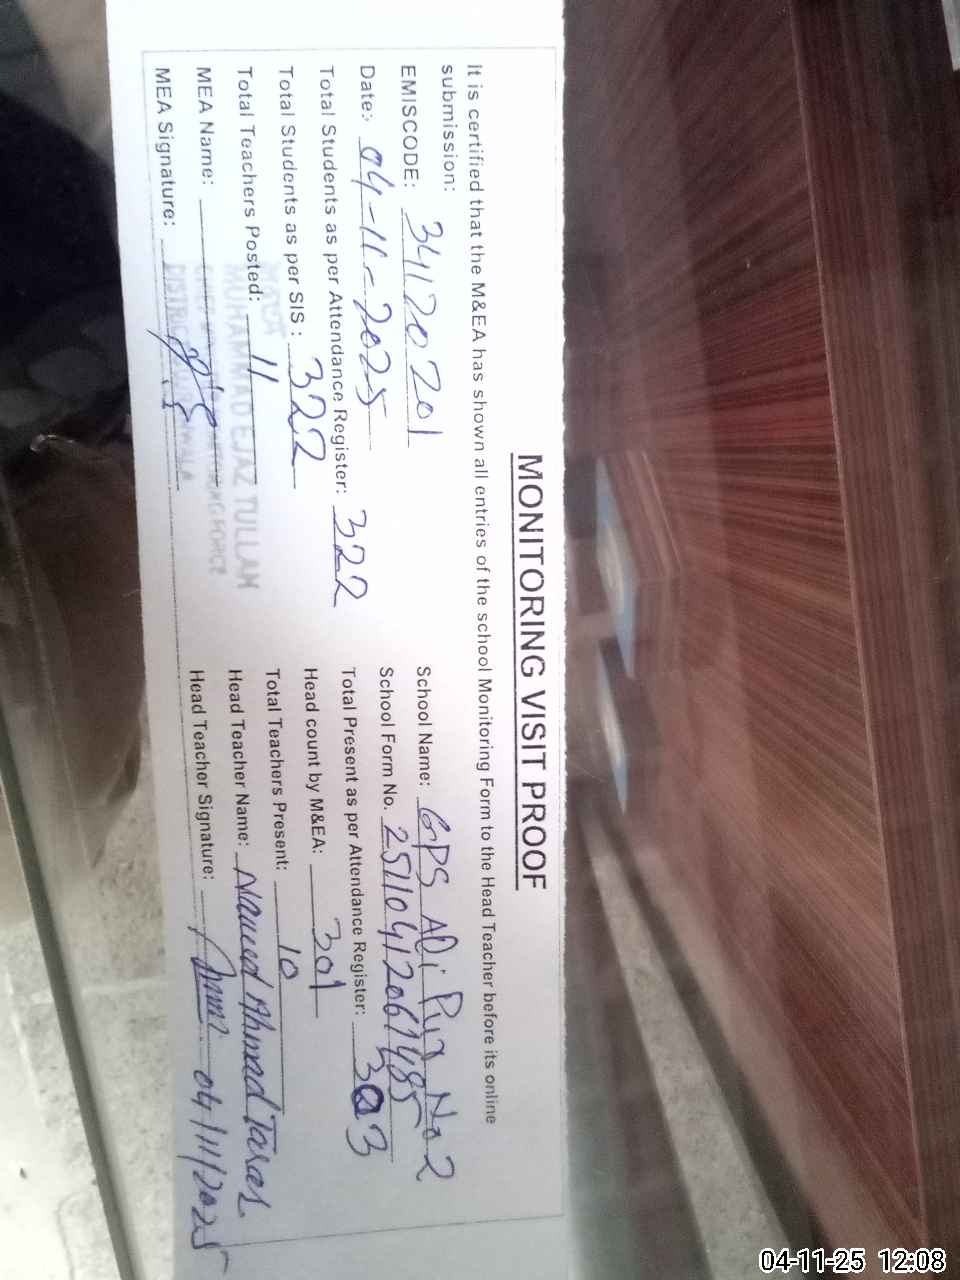 MONITORING VISIT PROOF
It is certified that the M&EA has shown all entries of the school Monitoring Form to the Head Teacher before its online
submission:
EMISCODE: 34120201
School Name: GPS ADi Pur No 2
Date:- 04-11-2025
School Form No.
Total Students as per Attendance Register: 322
Total Present as per Attendance Register: 303
Total Students as per SIS : 322
Head count by M&EA: 301
Total Teachers Posted: 11
Total Teachers Present: 10
MEA Name:
MUHAMMAD EJAZ TULLAH
Head Teacher Name: Naveed Ahmad
MEA Signature:
Head Teacher Signature: 04/11/2025
04-11-25 12:08